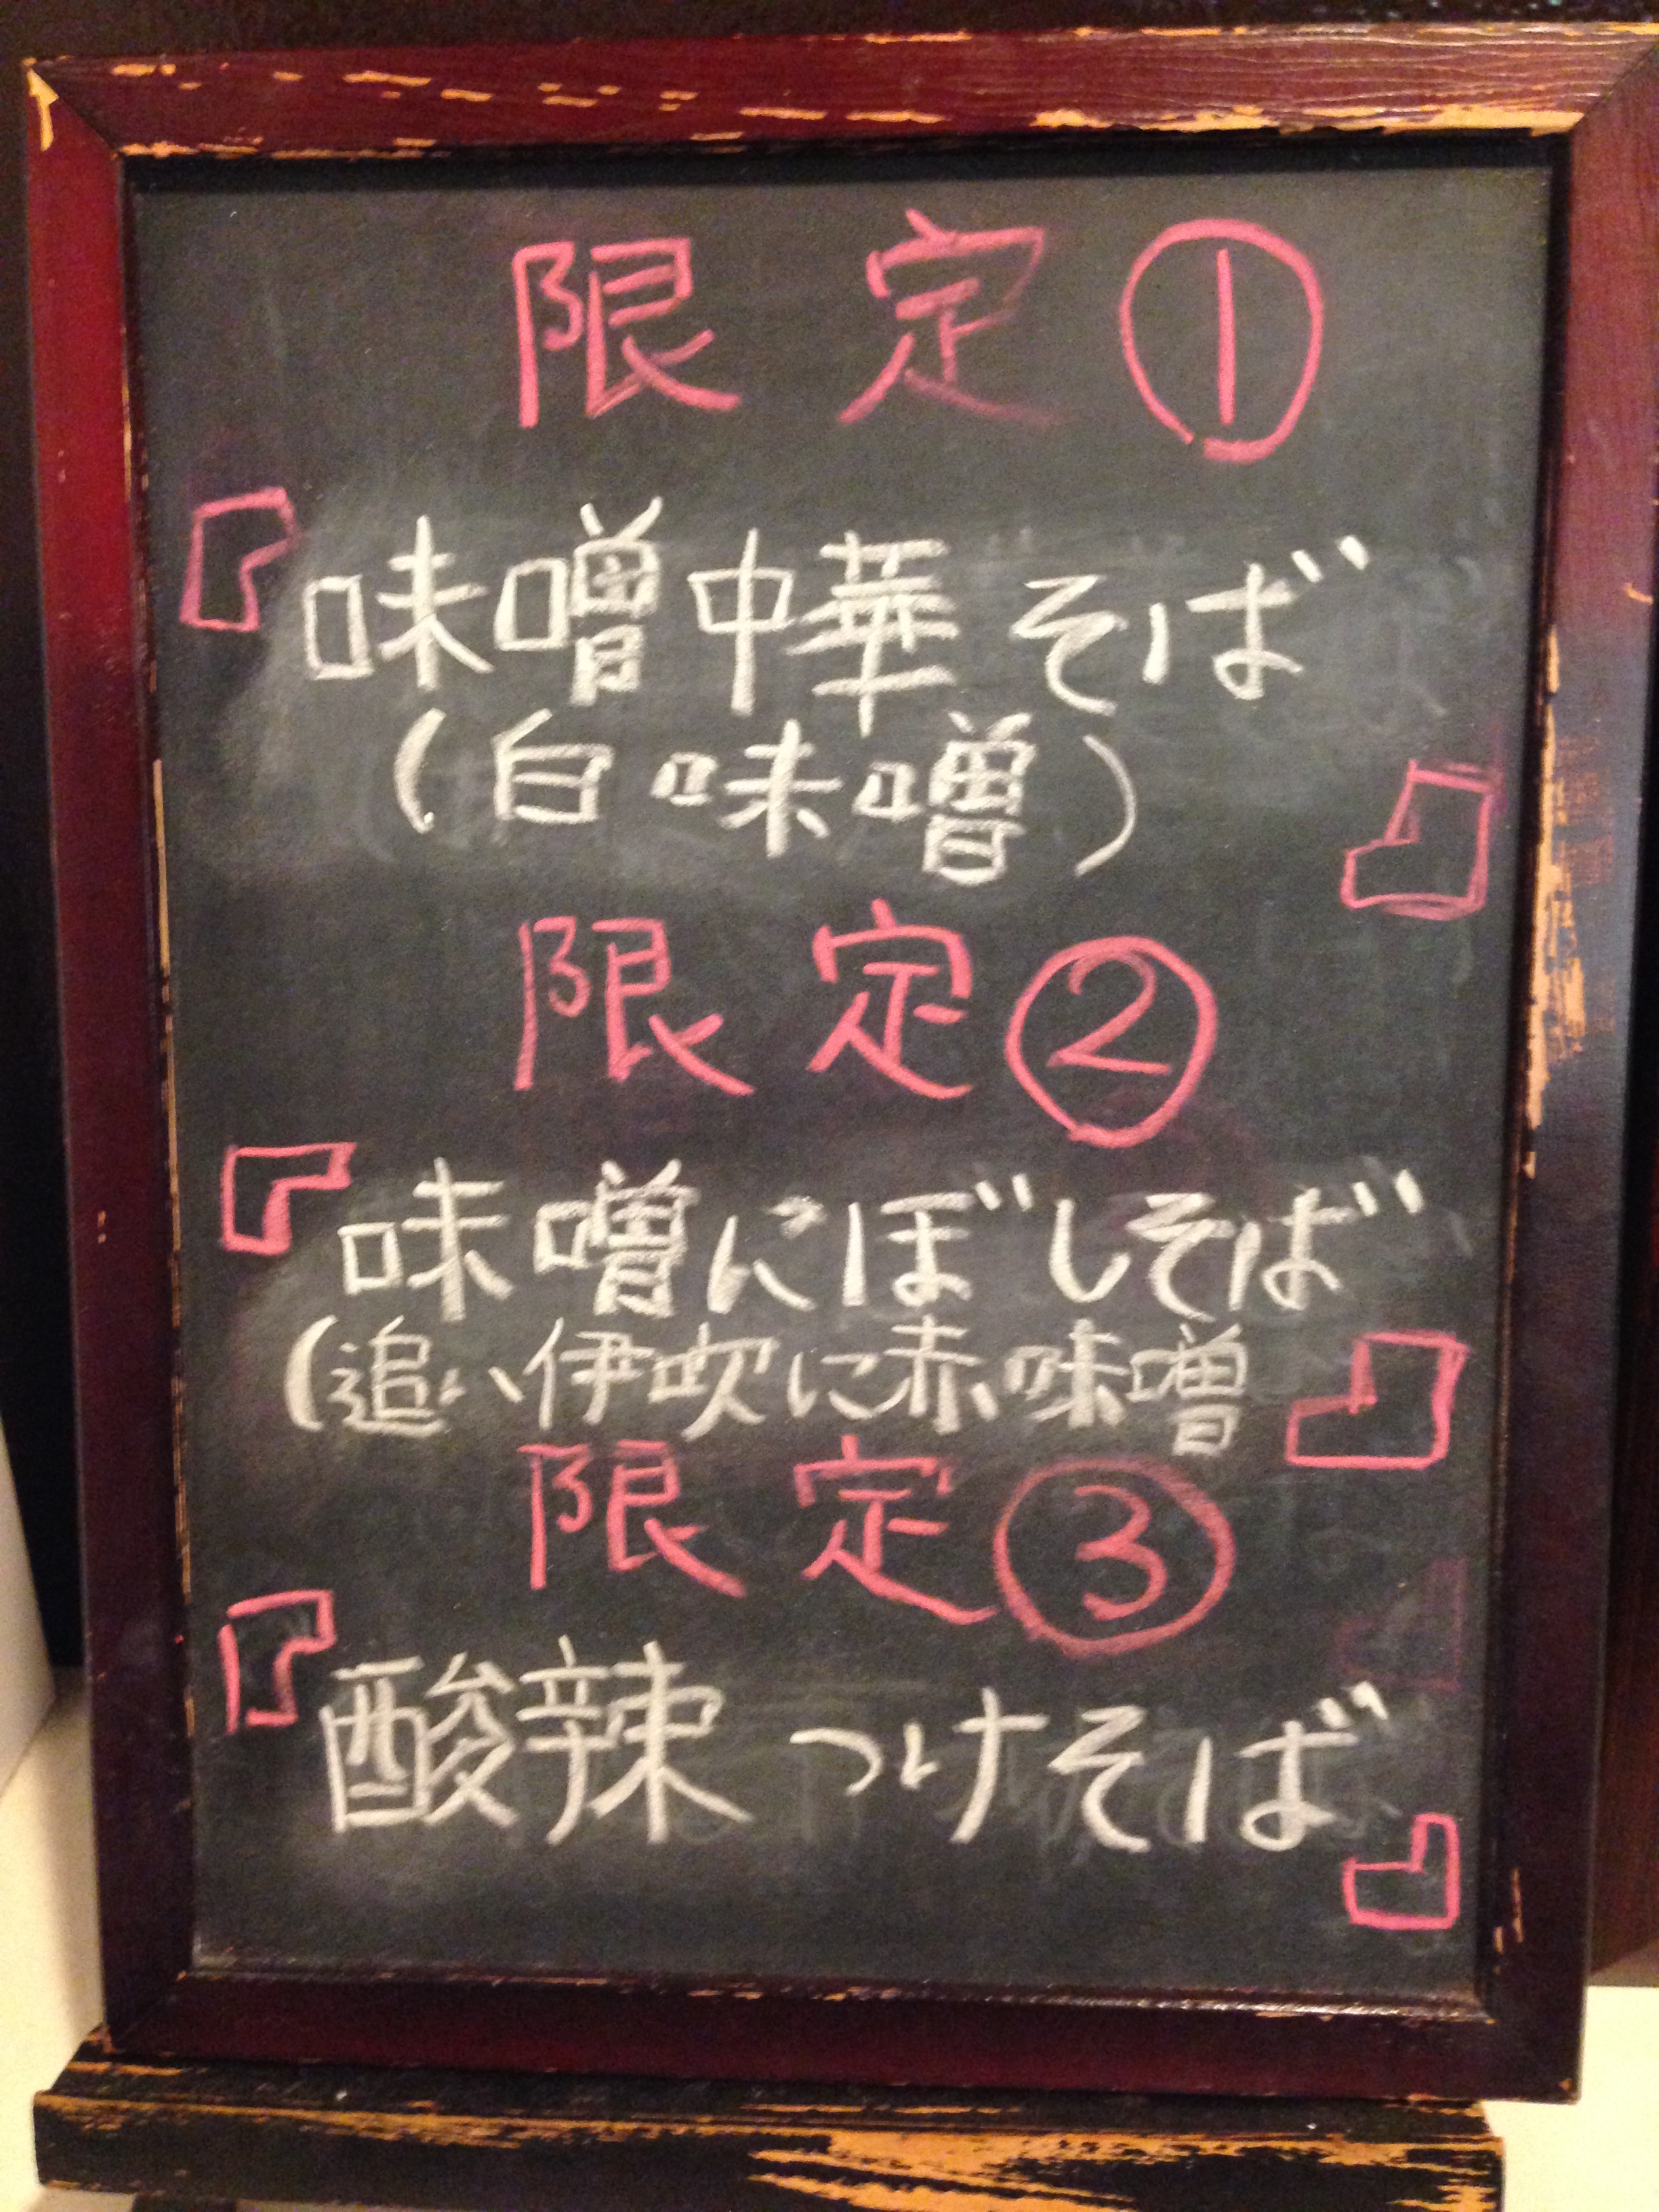 限定①
『味噌中華そば
(白味噌)』
限定②
『味噌にぼしそば
(追い伊吹に赤味噌』
限定③
『酸辣つけそば』